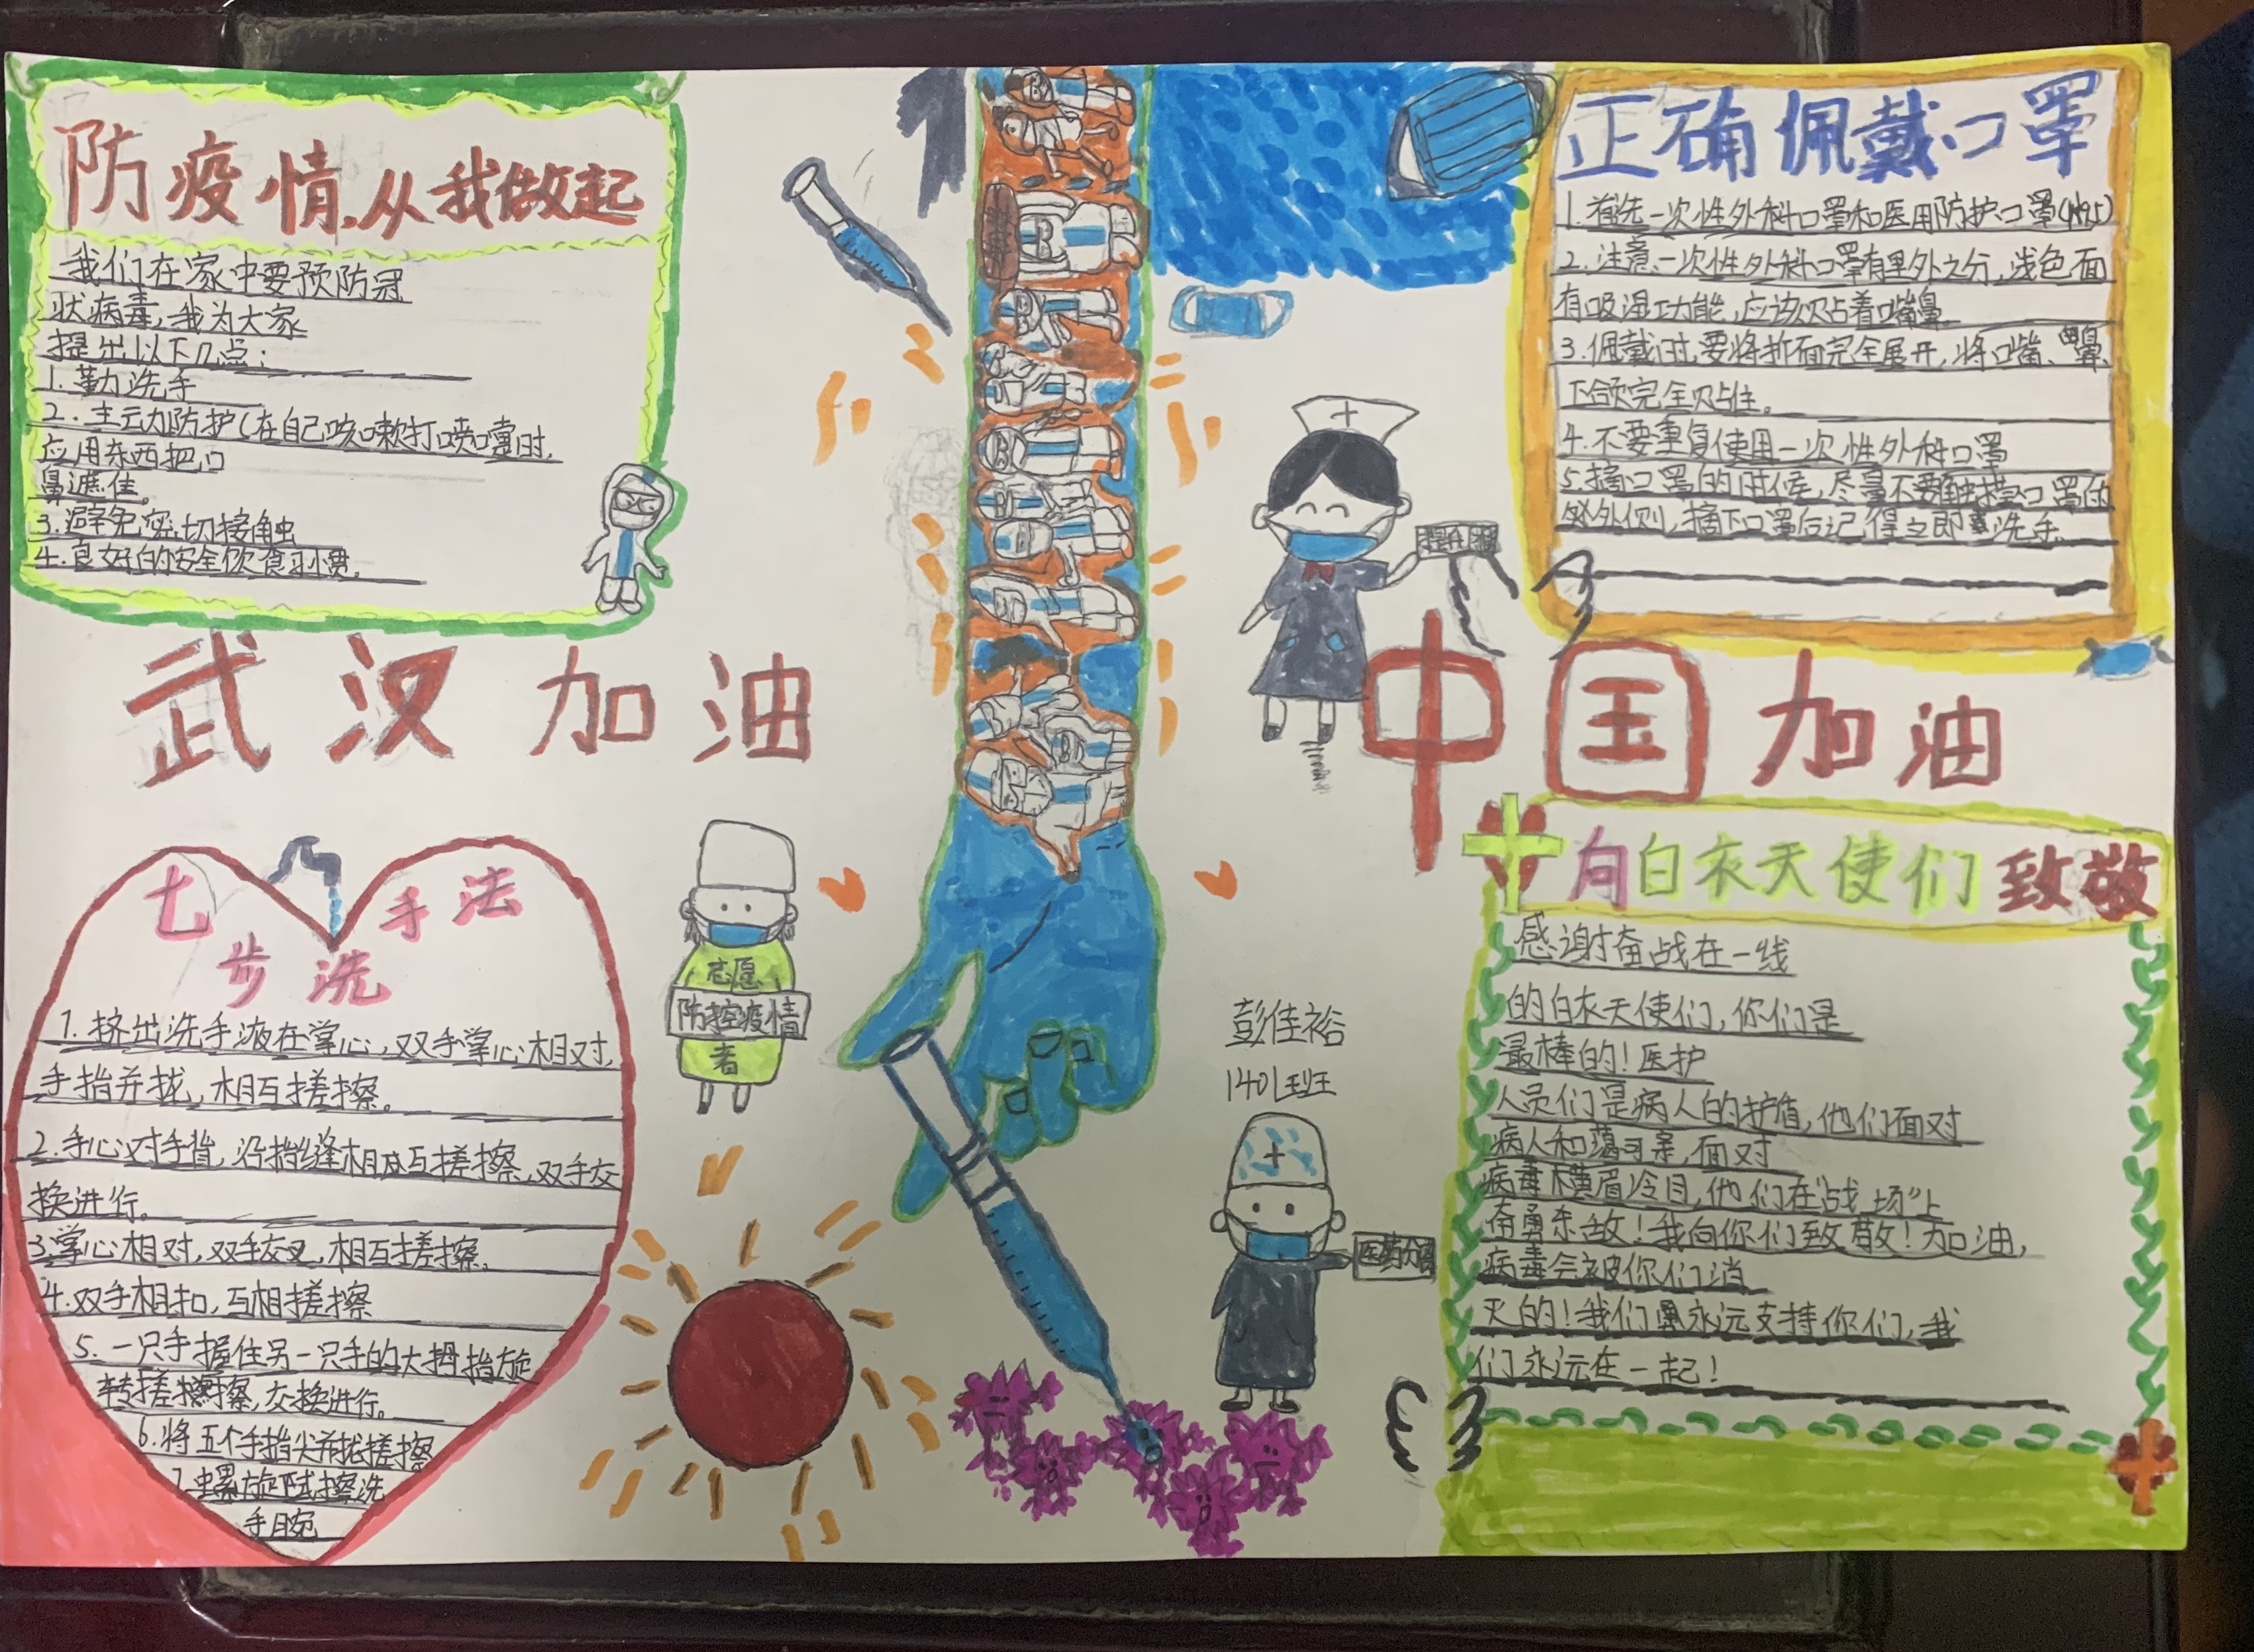 防疫情,从我做起
我们在家中要预防冠
状病毒,我为大家
提出以下几点:
1.勤洗手
2.主动防护(在自己咳嗽打喷嚏时,
应用东西把口
鼻遮住。
3.避免密切接触
4.良好的安全饮食习惯。
正确佩戴口罩
1.首选一次性外科口罩和医用防护口罩(N95)
2.注意一次性外科口罩有里外之分,浅色面
有吸湿功能,应该贴着嘴鼻
3.佩戴时,要将折面完全展开,将口嘴、鼻、
下颌完全贴住。
4.不要重复使用一次性外科口罩
5.摘口罩的时候,尽量不要触摸口罩的
外侧,摘下口罩后记得立即洗手。
武汉加油
中国加油
七步洗手法
1.挤出洗手液在掌心,双手掌心相对,
手指并拢,相互搓擦。
2.手心对手背,沿指缝相互搓擦,双手交
换进行。
3.掌心相对,双手交叉,相互搓擦。
4.双手相扣,互相搓擦
5.一只手握住另一只手的大拇指旋
转搓擦,交换进行。
6.将五个手指尖并拢搓擦
7.螺旋式擦洗
手腕
志愿
防控疫情
者
彭佳裕
1401班
向白衣天使们致敬
感谢奋战在一线
的白衣天使们,你们是
最棒的!医护
人员们是病人的护盾,他们面对
病人和蔼可亲,面对
病毒横眉冷目,他们在"战场"上
奋勇杀敌!我向你们致敬!加油,
病毒会被你们消
灭的!我们永远支持你们,我
们永远在一起!